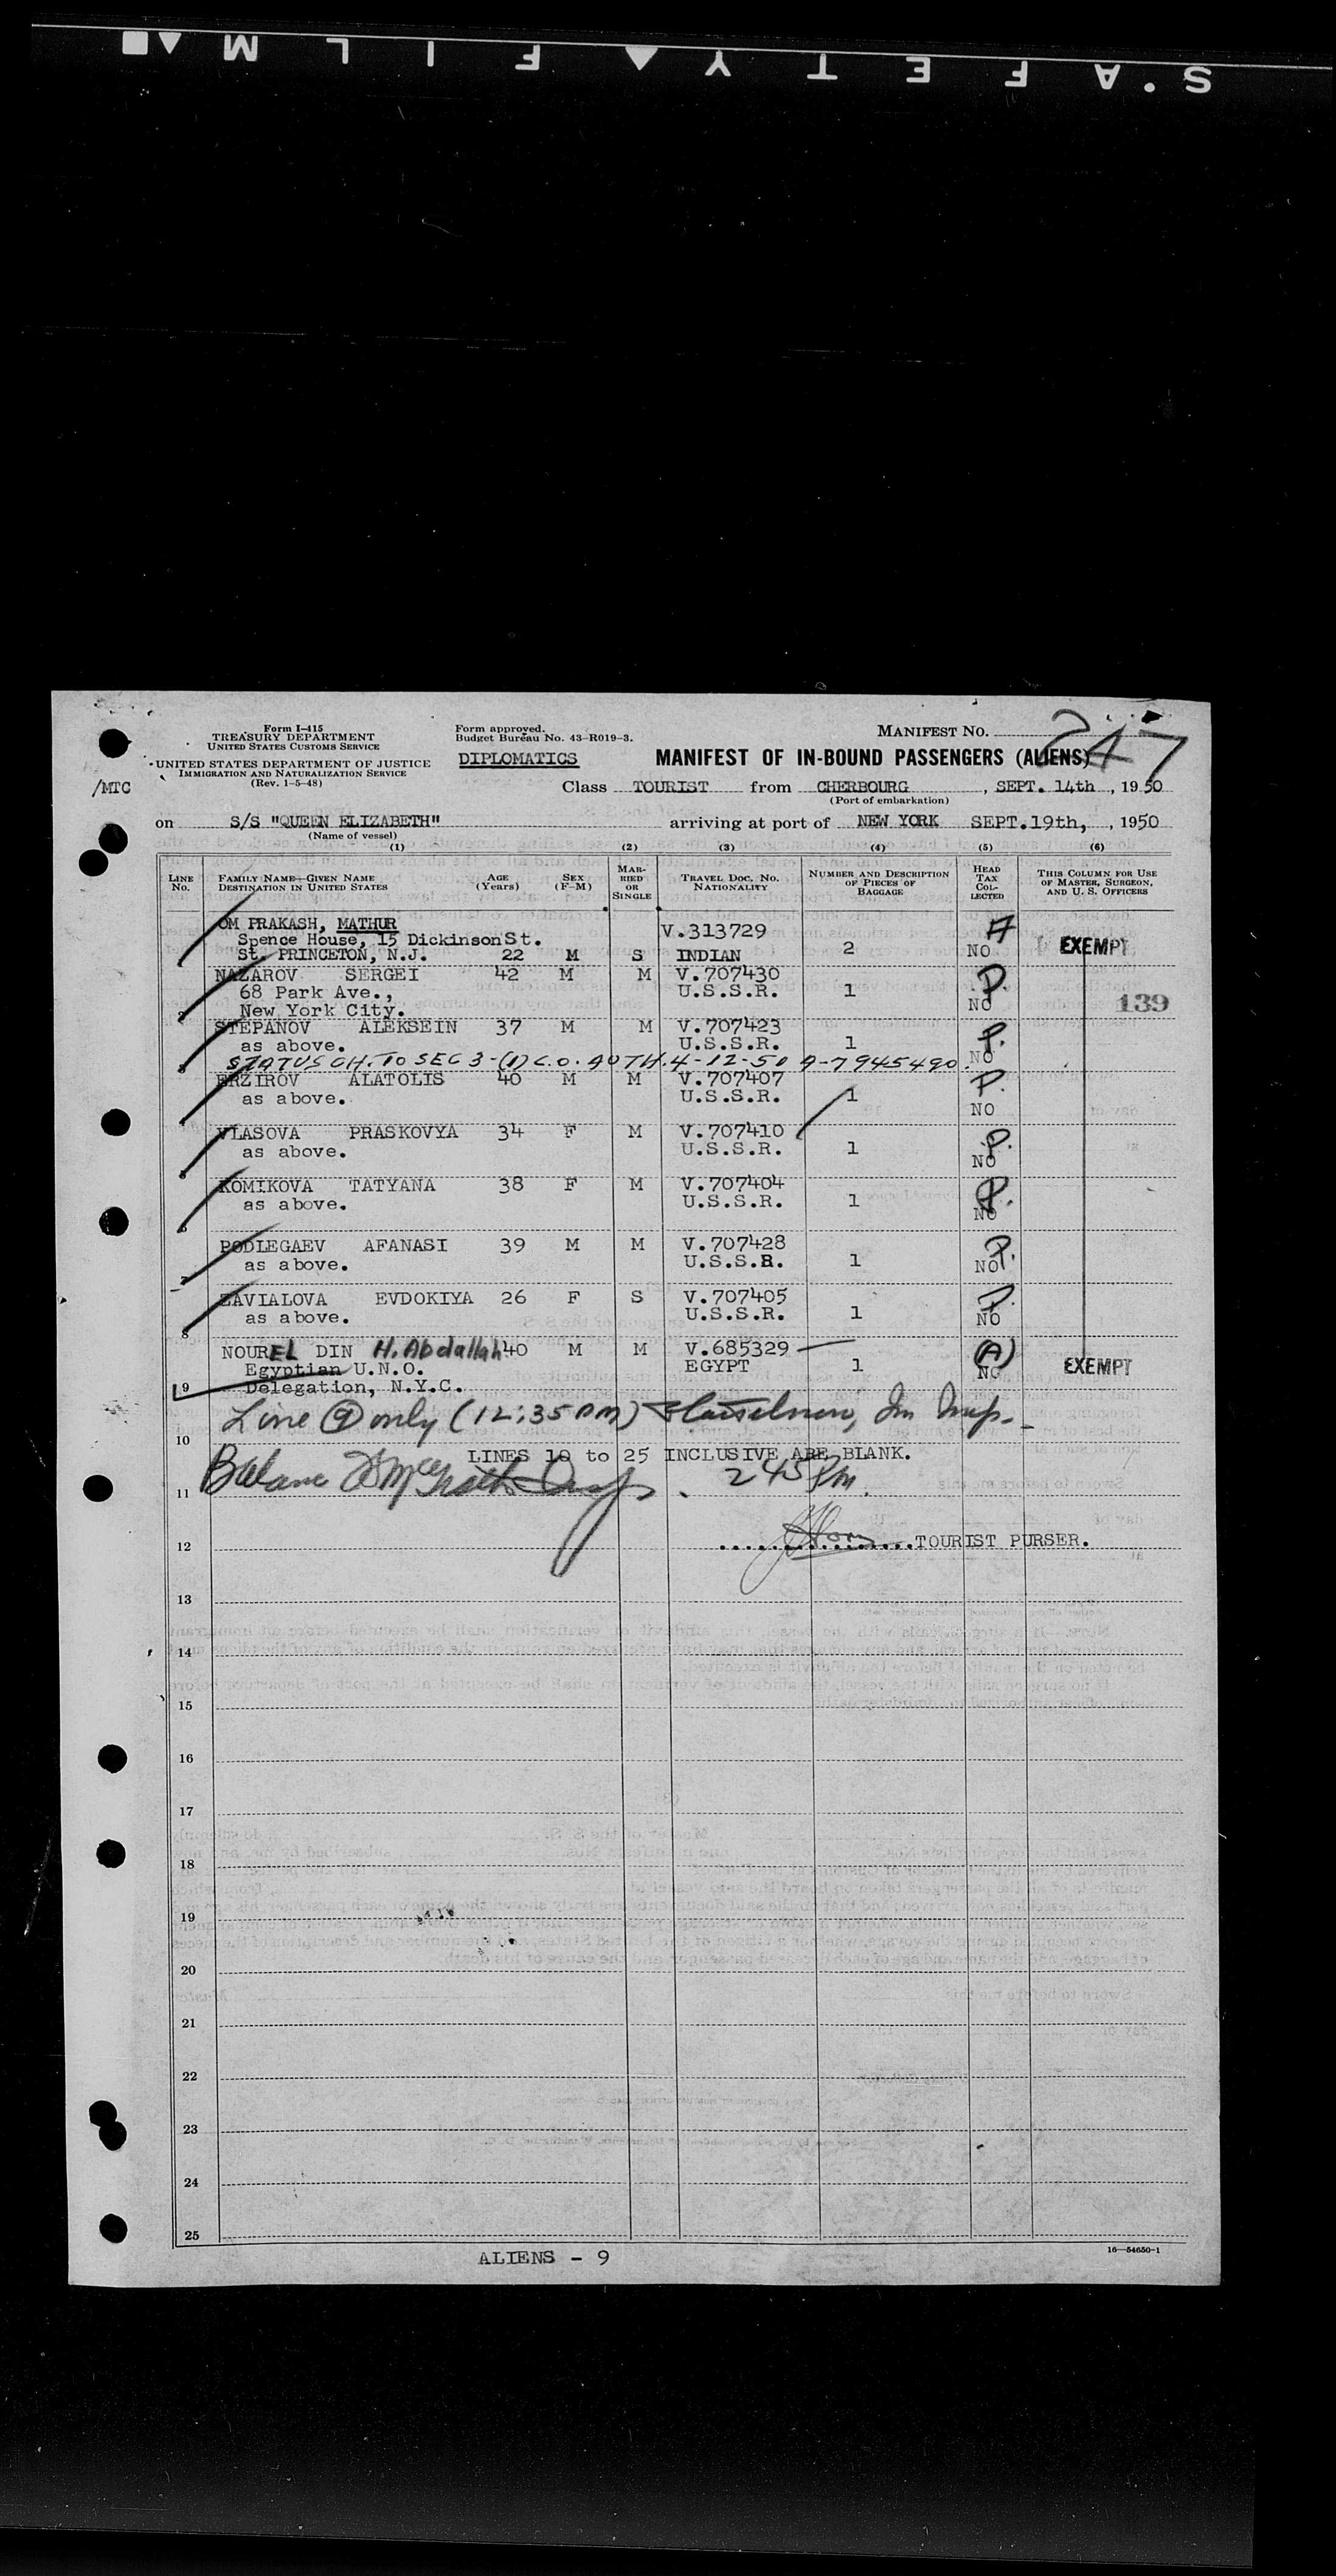 S.AFETY FILM
Form I-415
TREASURY DEPARTMENT
UNITED STATES CUSTOMS SERVICE
UNITED STATES DEPARTMENT OF JUSTICE
IMMIGRATION AND NATURALIZATION SERVICE
(Rev. 1-5-48)
/MTC
Form approved.
Budget Bureau No. 43-R019-3.
DIPLOMATICS
MANIFEST NO.
247
MANIFEST OF IN-BOUND PASSENGERS (ALIENS)
Class TOURIST from CHERBOURG, SEPT. 14th, 1950
(Port of embarkation)
on S/S "QUEEN ELIZABETH" arriving at port of NEW YORK SEPT.19th, , 1950
(Name of vessel)
(1) (2) (3) (4) (5) (6)
LINE No. FAMILY NAME—GIVEN NAME DESTINATION IN UNITED STATES AGE (Years) SEX (F-M) MARRIED OR SINGLE TRAVEL DOC. NO. NATIONALITY NUMBER AND DESCRIPTION OF PIECES OF BAGGAGE HEAD TAX COLLECTED THIS COLUMN FOR USE OF MASTER, SURGEON, AND U. S. OFFICERS
OM PRAKASH, MATHUR V.313729 A
Spence House, 15 Dickinson St. 2 EXEMPT
St. PRINCETON, N.J. 22 M S INDIAN NO
NAZAROV SERGEI 42 M M V.707430 P
68 Park Ave., U.S.S.R. 1
2 New York City. NO 139
STEPANOV ALEKSEIN 37 M M V.707423 P.
as above. U.S.S.R. 1
3 STATUS CH. TO SEC 3-(1) C.O. AUTH. 4-12-51 A-7945490. NO
ERZIROV ALATOLIS 40 M M V.707407 P.
4 as above. U.S.S.R. 1 NO
VLASOVA PRASKOVYA 34 F M V.707410 P.
as above. U.S.S.R. 1 NO
KOMIKOVA TATYANA 38 F M V.707404 P.
as above. U.S.S.R. 1 NO
PODLEGAEV AFANASI 39 M M V.707428 P.
7 as above. U.S.S.R. 1 NO
ZAVIALOVA EVDOKIYA 26 F S V.707405 P.
8 as above. U.S.S.R. 1 NO
NOUREL DIN H. Abdallah 40 M M V.685329 (A)
Egyptian U.N.O. EGYPT 1 NO EXEMPT
9 Delegation, N.Y.C.
Line 9 only (12:35 PM) Im Insp.
10
LINES 10 to 25 INCLUSIVE ARE BLANK.
Balance McGrath Insp. 245 PM.
11
12 TOURIST PURSER.
13
14
15
16
17
18
19
20
21
22
23
24
25
ALIENS - 9
16—54650-1